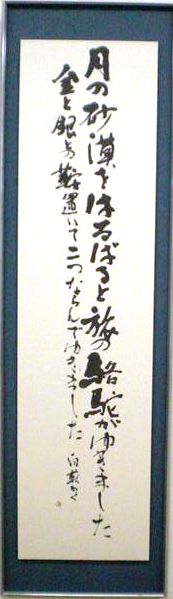 月の砂漠をはるばると旅の駱駝がゆきました
金と銀との鞍置いて二つならんでゆきました